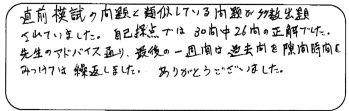 直前模試の問題と類似している問題が多数出題
されていました。自己採点では30問中26問の正解でした。
先生のアドバイス通り、最後の一週間は過去問を隙間時間を
みつけては繰返しました。ありがとうございました。